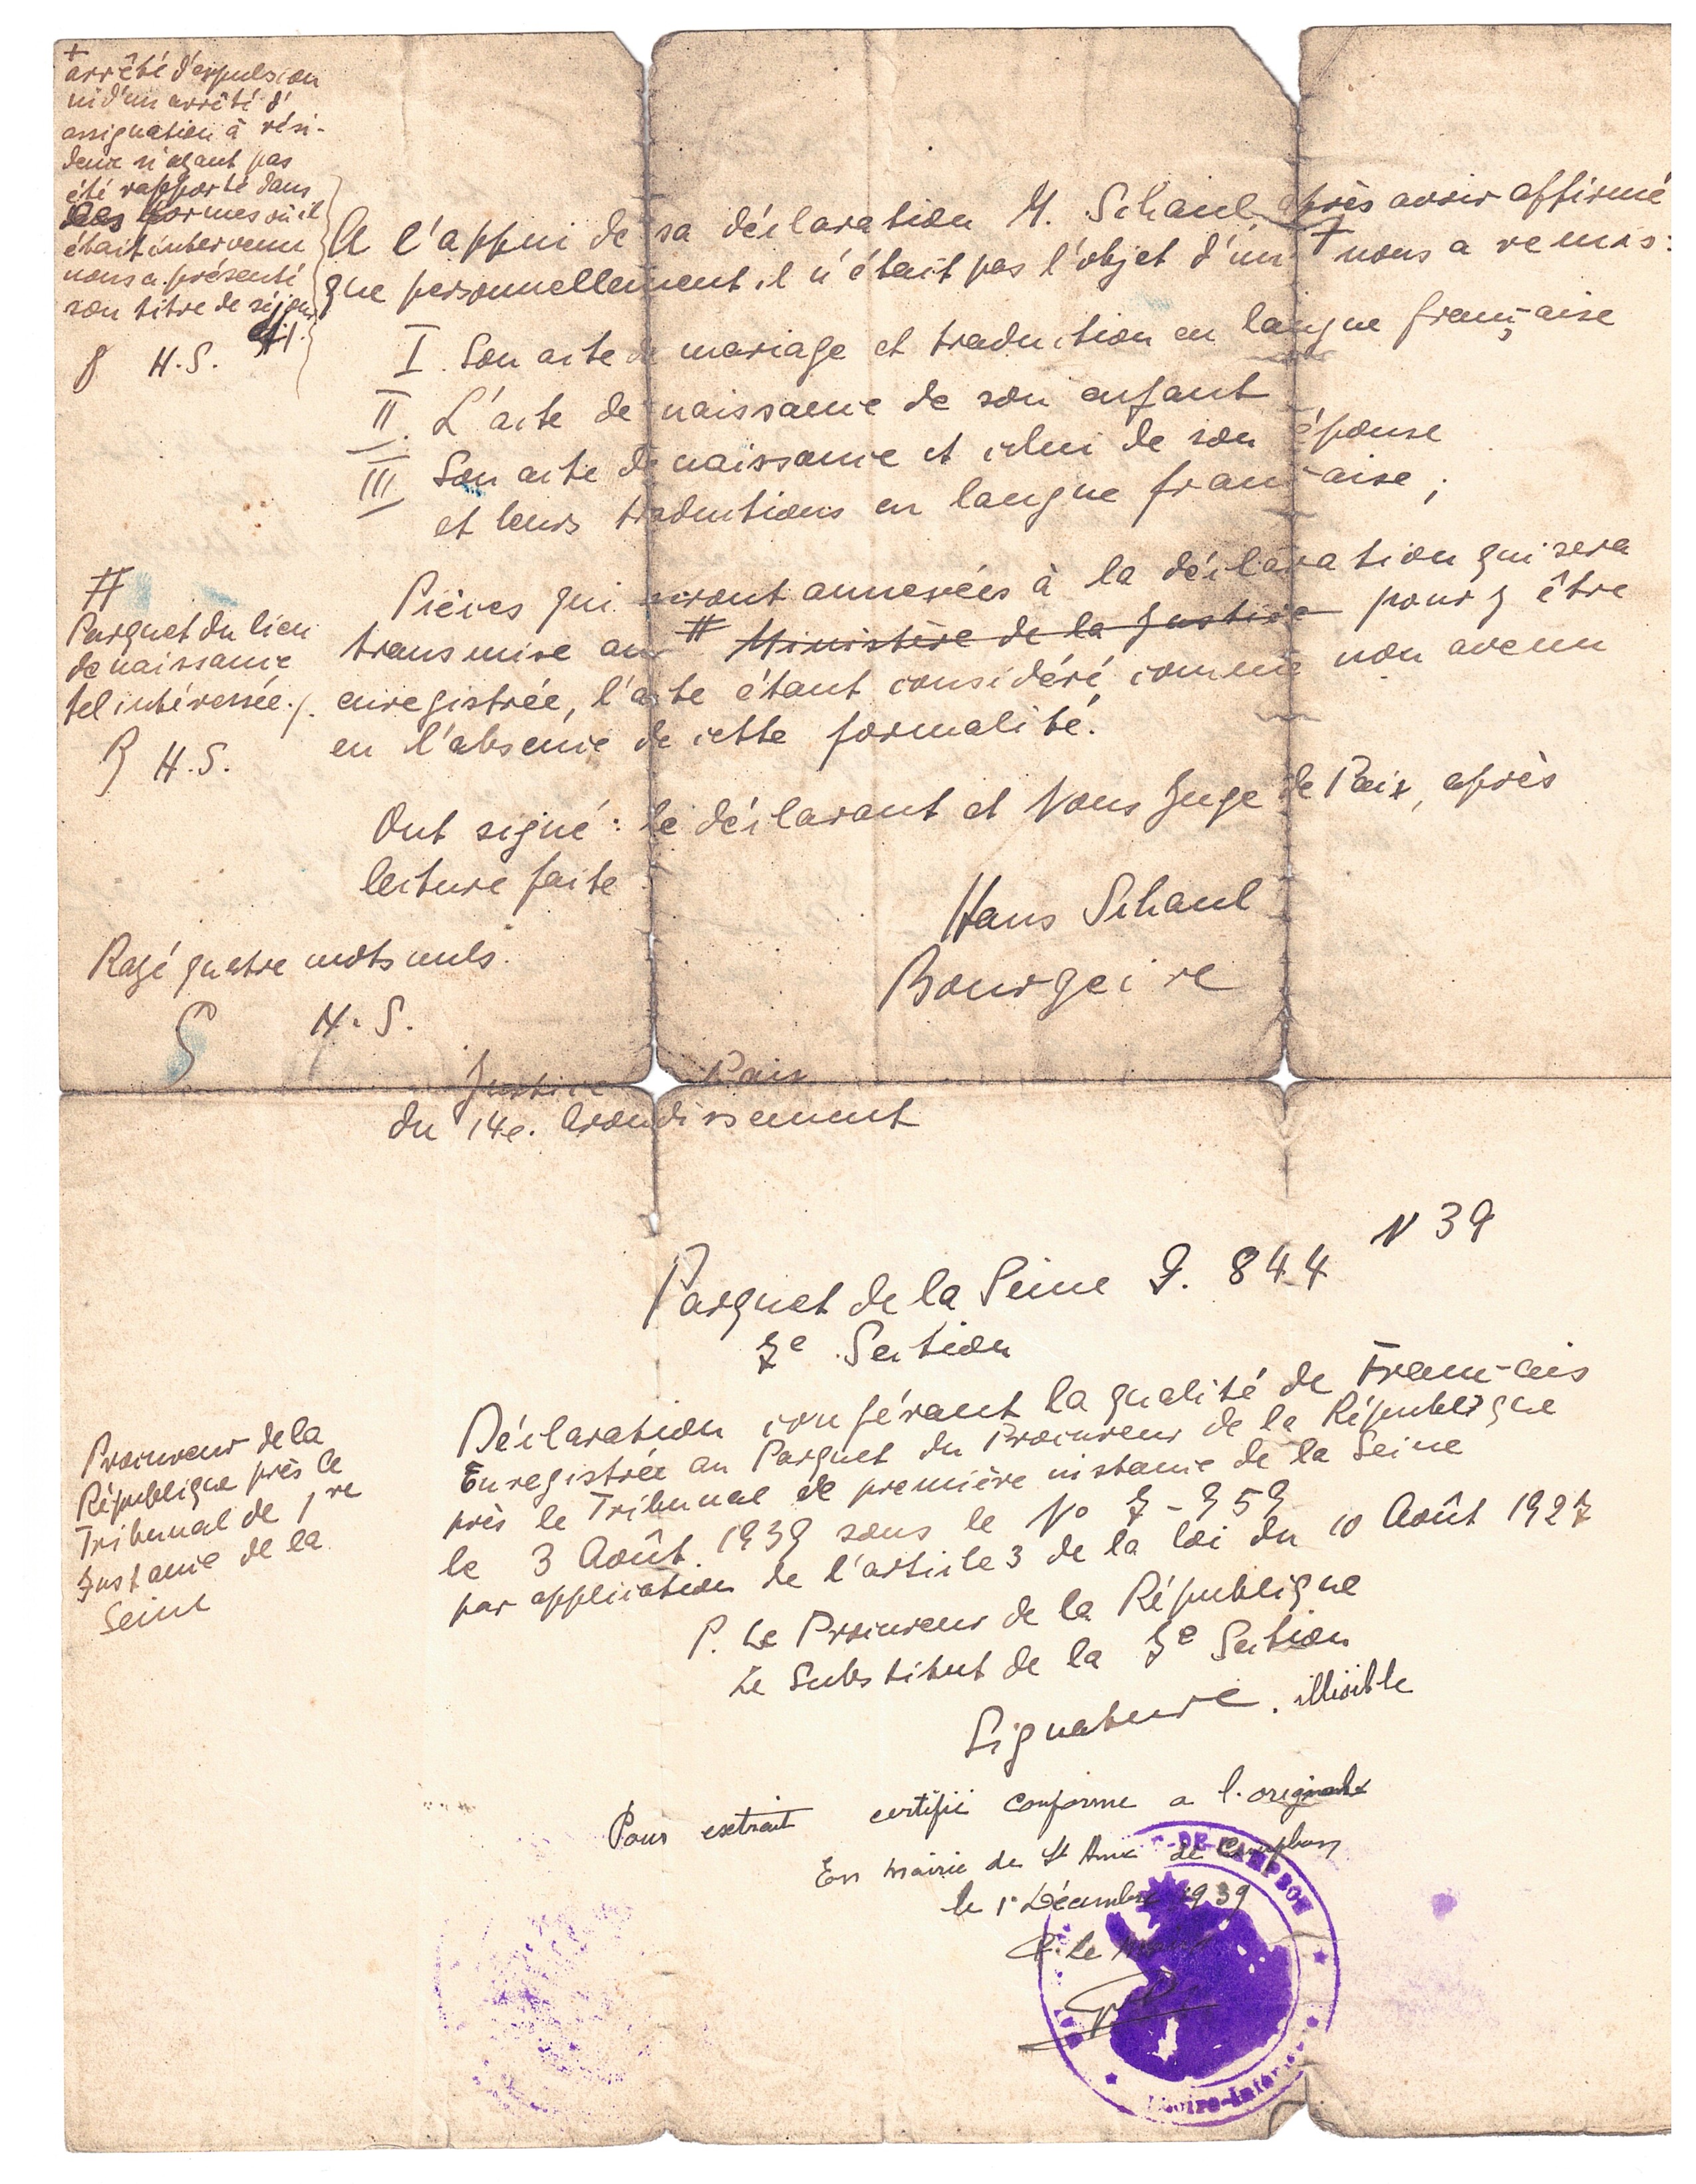 +
arrêté d'expulsion
ni d'un arrêté d'
assignation à rési-
dence n'ayant pas
été rapporté dans
les formes où il
était intervenu
nous a présenté
son titre de séjour
H.S.
A l'appui de sa déclaration M. Schaul après avoir affirmé
que personnellement il n'était pas l'objet d'un + nous a remis:
I. Son acte de mariage et traduction en langue française
II. L'acte de naissance de son enfant
III Son acte de naissance et celui de son épouse
et leurs traductions en langue française;
#
Parquet du lieu
de naissance
de l'intéressée./.
H.S.
Pièces qui seront annexées à la déclaration qui sera
transmise au # Ministère de la Justice pour y être
enregistrée, l'acte étant considéré comme non avenu
en l'absence de cette formalité.
Ont signé: le déclarant et Nous Juge de Paix, après
lecture faite
Hans Schaul
Bourgeire
Rayé quatre mots nuls.
H.S.
Justice Paix
du 14e. Arondissement
N 39
Parquet de la Seine 844
Section
Procureur de la
République près le
Tribunal de 1re
Instance de la
Seine
Déclaration conférant la qualité de Français
Enregistrée au Parquet du Procureur de la République
près le Tribunal de première instance de la Seine
le 3 Août. 1939 sous le No 7-959
par application de l'article 3 de la loi du 10 Août 1927
P. Le Procureur de la République
Le Substitut de la Section
Signature. illisible
Pour extrait certifié conforme a l'original
En mairie de St Anne de Campbon
le 1er Décembre 1939
P. le Maire
DE-CAMPBON
Loire-Infér